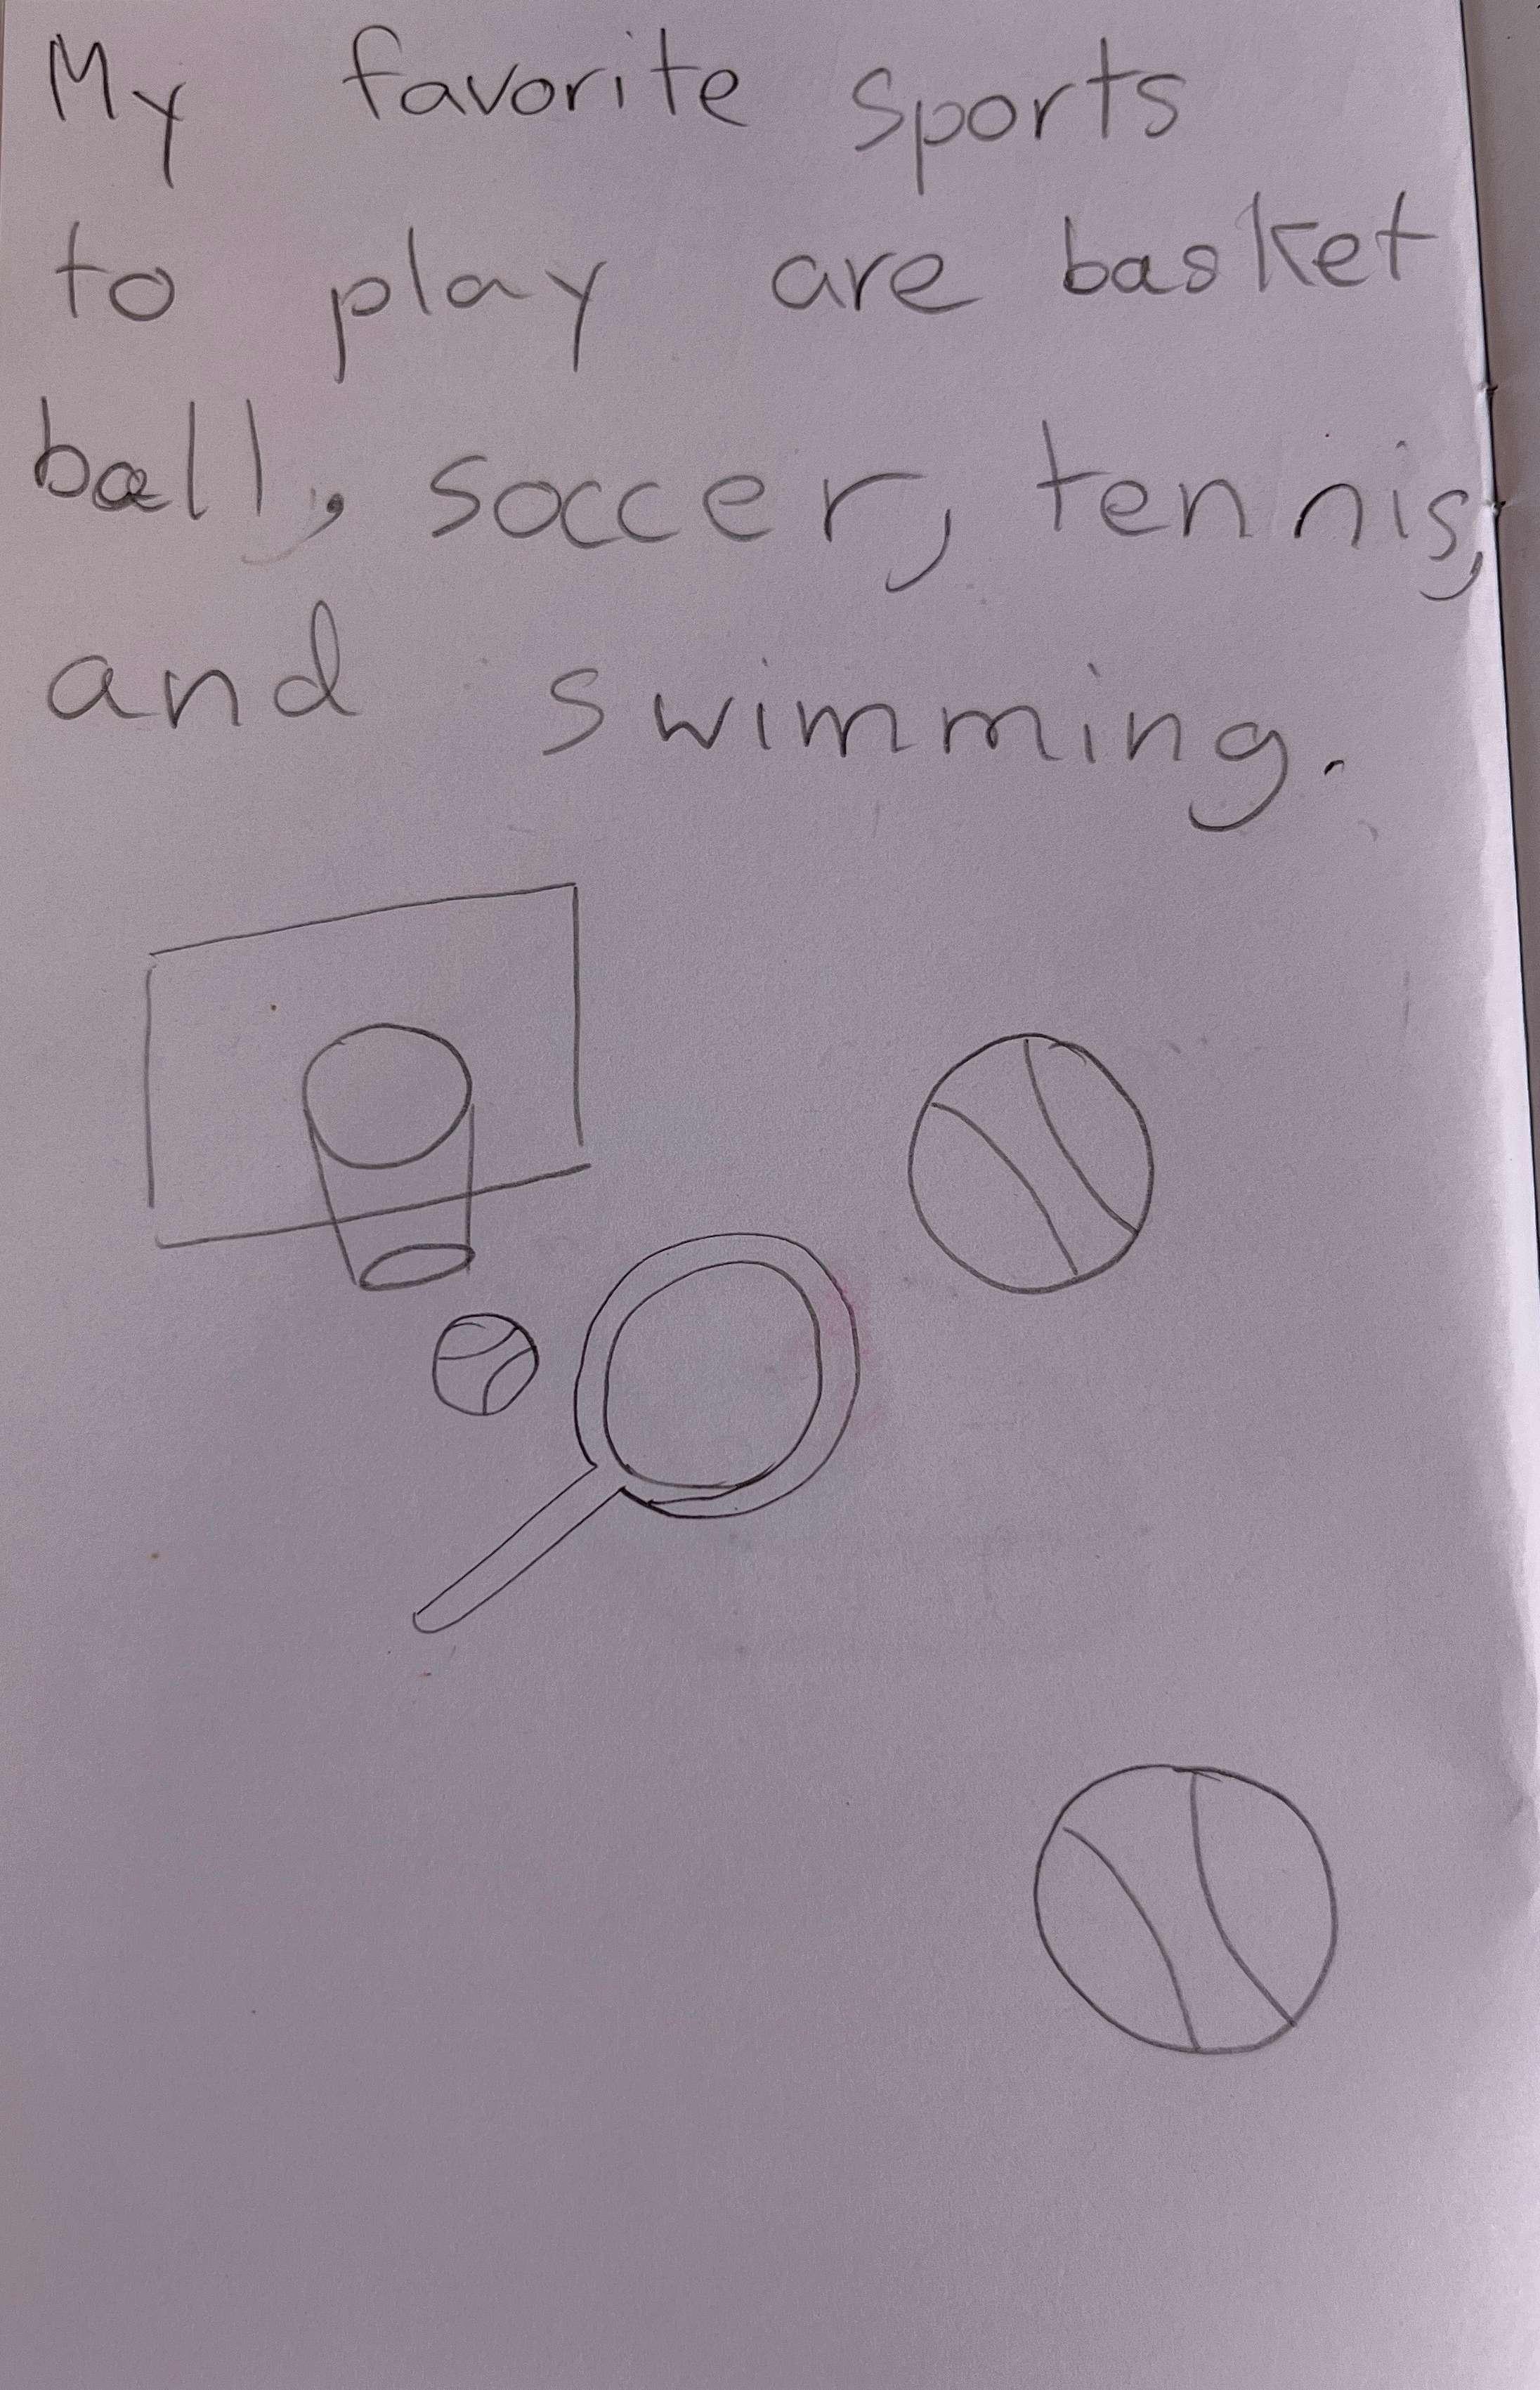 My favorite sports
to play are basket
ball, soccer, tennis,
and swimming.